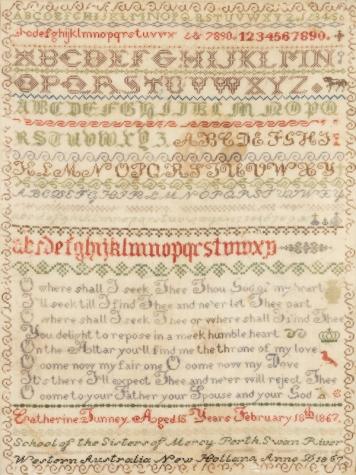 ABCDEFGHIJKLMNOPQRSTUVWXYZ 123456
abcdefghijklmnopqrstuvwx z& 7890. 1234567890.
ABCDEFGHIJKLMN
OPQRSTUVWXYZ.
ABCDEFGHIJKLMNOPQ
RSTUVWXYZ. ABCDEFGHIJ
KLMNOPQRSTUVWXY
ABCDEFGHIJKLMNOPQRSTUVWXY
abcdefghijklmnopqrstuvwxy
O where shall I seek Thee Thou God of my heart
I'll seek till I find Thee and ne'er let Thee part
O where shall I seek Thee or where shall I find Thee
You delight to repose in a meek humble heart
On the Altar you'll find me the throne of my love
O come now my fair one O come now my Dove
It's there I'll expect Thee and ne'er will reject Thee
O come to your Father your Spouse and your God
Catherine Tunney Aged 18 Years February 18th 1867.
School of the Sisters of Mercy Perth Swan River
Western Australia New Holland Anno D 1867